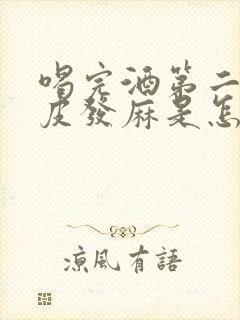 喝完酒第二
皮發麻是怎
涼風有語